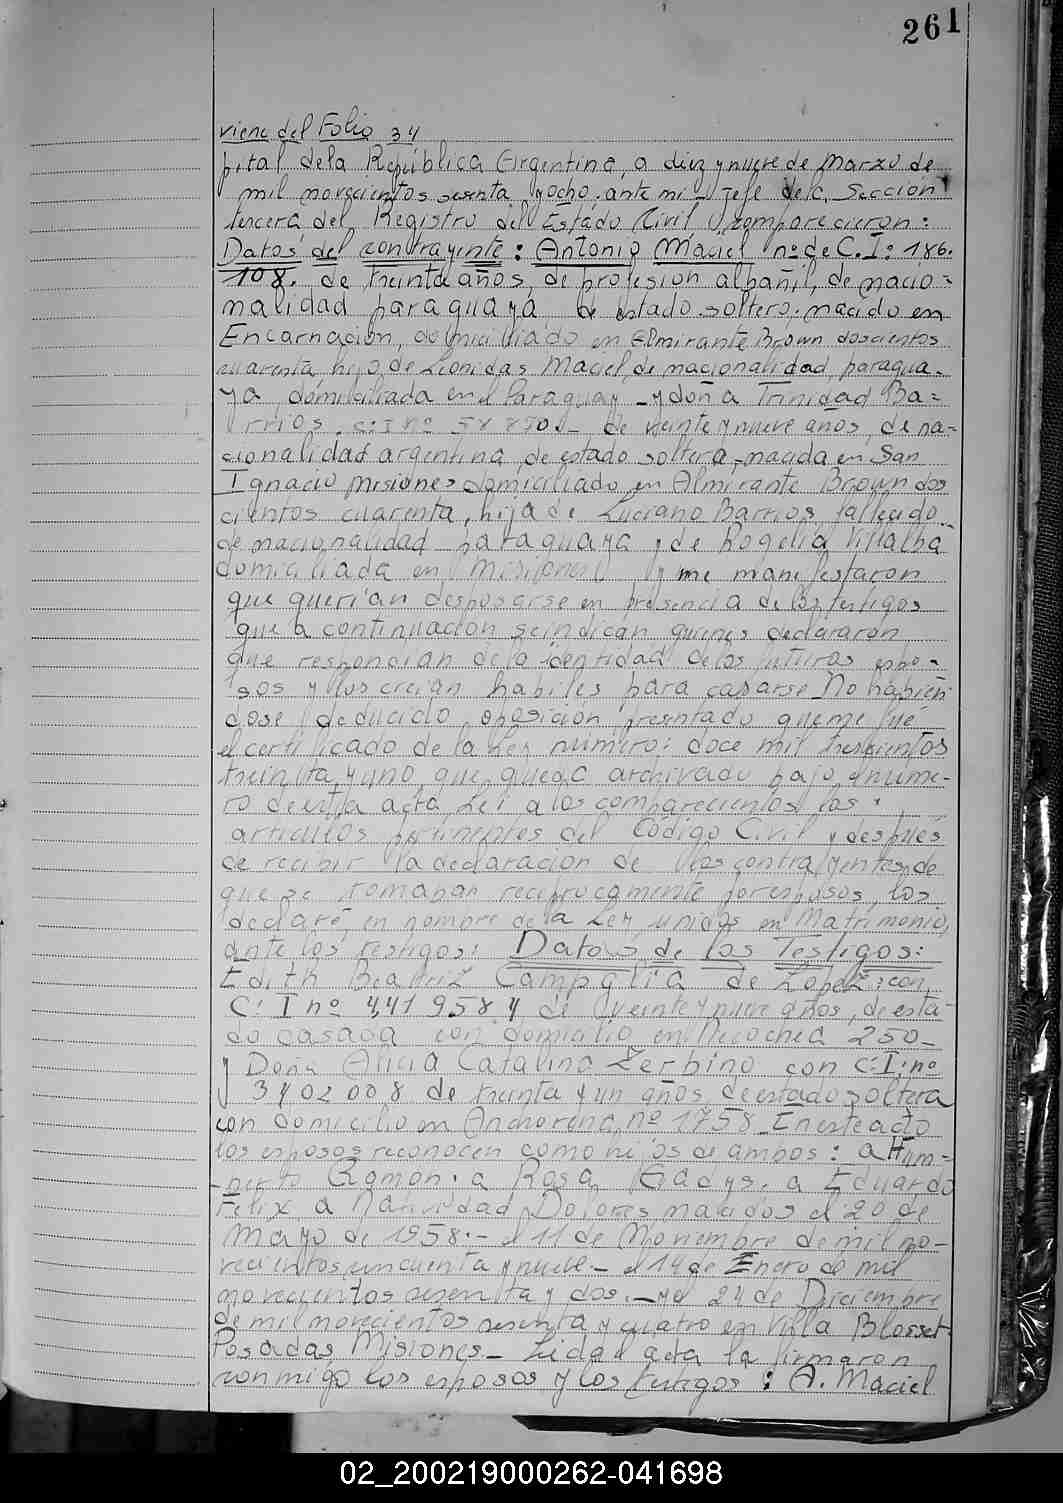 261
viene del Folio 34
pital dela República Argentina, a diez y nueve de Marzo de
mil novecientos sesenta y ocho. ante mi Jefe de la Sección
tercera del Registro del Estado Civil comparecieron:
Datos del contrayente: Antonio Maciel nº de C.I: 186.
108. de treinta años, de profesion albañil, de nacio=
nalidad paraguaya de estado soltero, nacido en
Encarnación, domiciliado en Almirante Brown doscientos
cuarenta, hijo de Leonidas Maciel, de nacionalidad paragua-
ya domiciliada en el Paraguay - y doña Trinidad Ba=
rrios. C:I nº de veinte y nueve años, de na=
cionalidad argentina, de estado soltera, nacida en San
Ignacio misiones domiciliado en Almirante Brown dos
cientos cuarenta, hija de Luciano Barrios fallecido
de nacionalidad paraguaya y de Rogelia Villalba
domiciliada en Misiones y me manifestaron
que querian desposarse en presencia de los testigos
que a continuación se indican quienes declararon
que respondian de la identidad de los futuros espo-
sos y los creian habiles para casarse. No habien
dose deducido oposición presentado que me fué
el certificado de la Ley número: doce mil trescientos
treinta y uno que queda archivado bajo el nume-
ro de esta acta Lei a los comparecientes los
articulos pertinentes del Código Civil y después
de recibir la declaración de los contrayentes, de
que se tomaban reciprocamente por esposos, los
declaré, en nombre de la Ley, unidos en Matrimonio,
ante los testigos: Datos de los Testigos:
Edith Beatriz de Lopez: con
C: I nº 4,419584 de veinte y nueve años, de esta-
do casada con domicilio en Necochea 250-
y Doña Alicia Catalina Zerbino con C:I:nº
3402008 de treinta y un años, de estado soltera
con domicilio en Anchorena nº 1758. En este acto
los esposos reconocen como hijos de ambos: a Hum-
berto Ramon. a Rosa Gladys. a Eduardo
Felix a Natividad Dolores nacidos el 20 de
Mayo de 1958.- el 11 de Noviembre de mil no-
vecientos cincuenta y nueve.- el 14 de Enero de mil
novecientos sesenta y dos.- y el 24 de Diciembre
de mil novecientos sesenta y cuatro en Villa Blosset
Posadas Misiones- Leida el acta la firmaron
conmigo los esposos y los testigos: A. Maciel
02_200219000262-041698